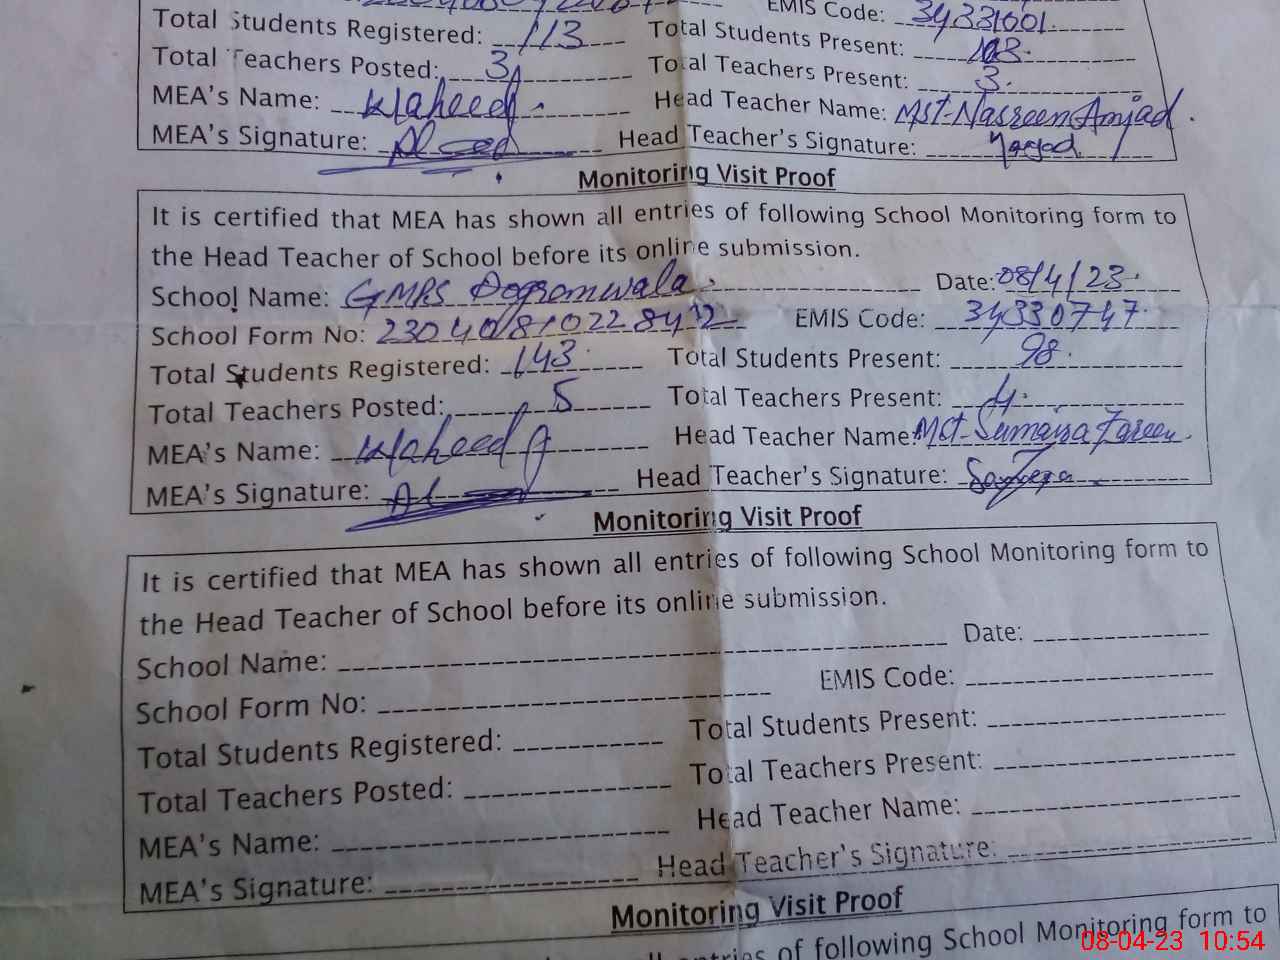 EMIS Code: 34331001
Total Students Registered: 113 Total Students Present:
Total Teachers Posted: 3 Total Teachers Present: 3.
MEA's Name: Waheed A. Head Teacher Name: Mst. Nasreen Amjad.
MEA's Signature: Head Teacher's Signature:
Monitoring Visit Proof
It is certified that MEA has shown all entries of following School Monitoring form to
the Head Teacher of School before its online submission.
School Name: GMPS Dogranwala. Date: 08/4/23.
School Form No: EMIS Code: 34330747.
Total Students Registered: 143. Total Students Present: 98.
Total Teachers Posted: 5 Total Teachers Present: 4.
MEA's Name: Waheed A Head Teacher Name: Mst. Sumaira
MEA's Signature: Head Teacher's Signature:
Monitoring Visit Proof
It is certified that MEA has shown all entries of following School Monitoring form to
the Head Teacher of School before its online submission.
School Name: Date:
School Form No: EMIS Code:
Total Students Registered: Total Students Present:
Total Teachers Posted: Total Teachers Present:
MEA's Name: Head Teacher Name:
MEA's Signature: Head Teacher's Signature:
Monitoring Visit Proof
entries of following School Monitoring form to
08-04-23 10:54